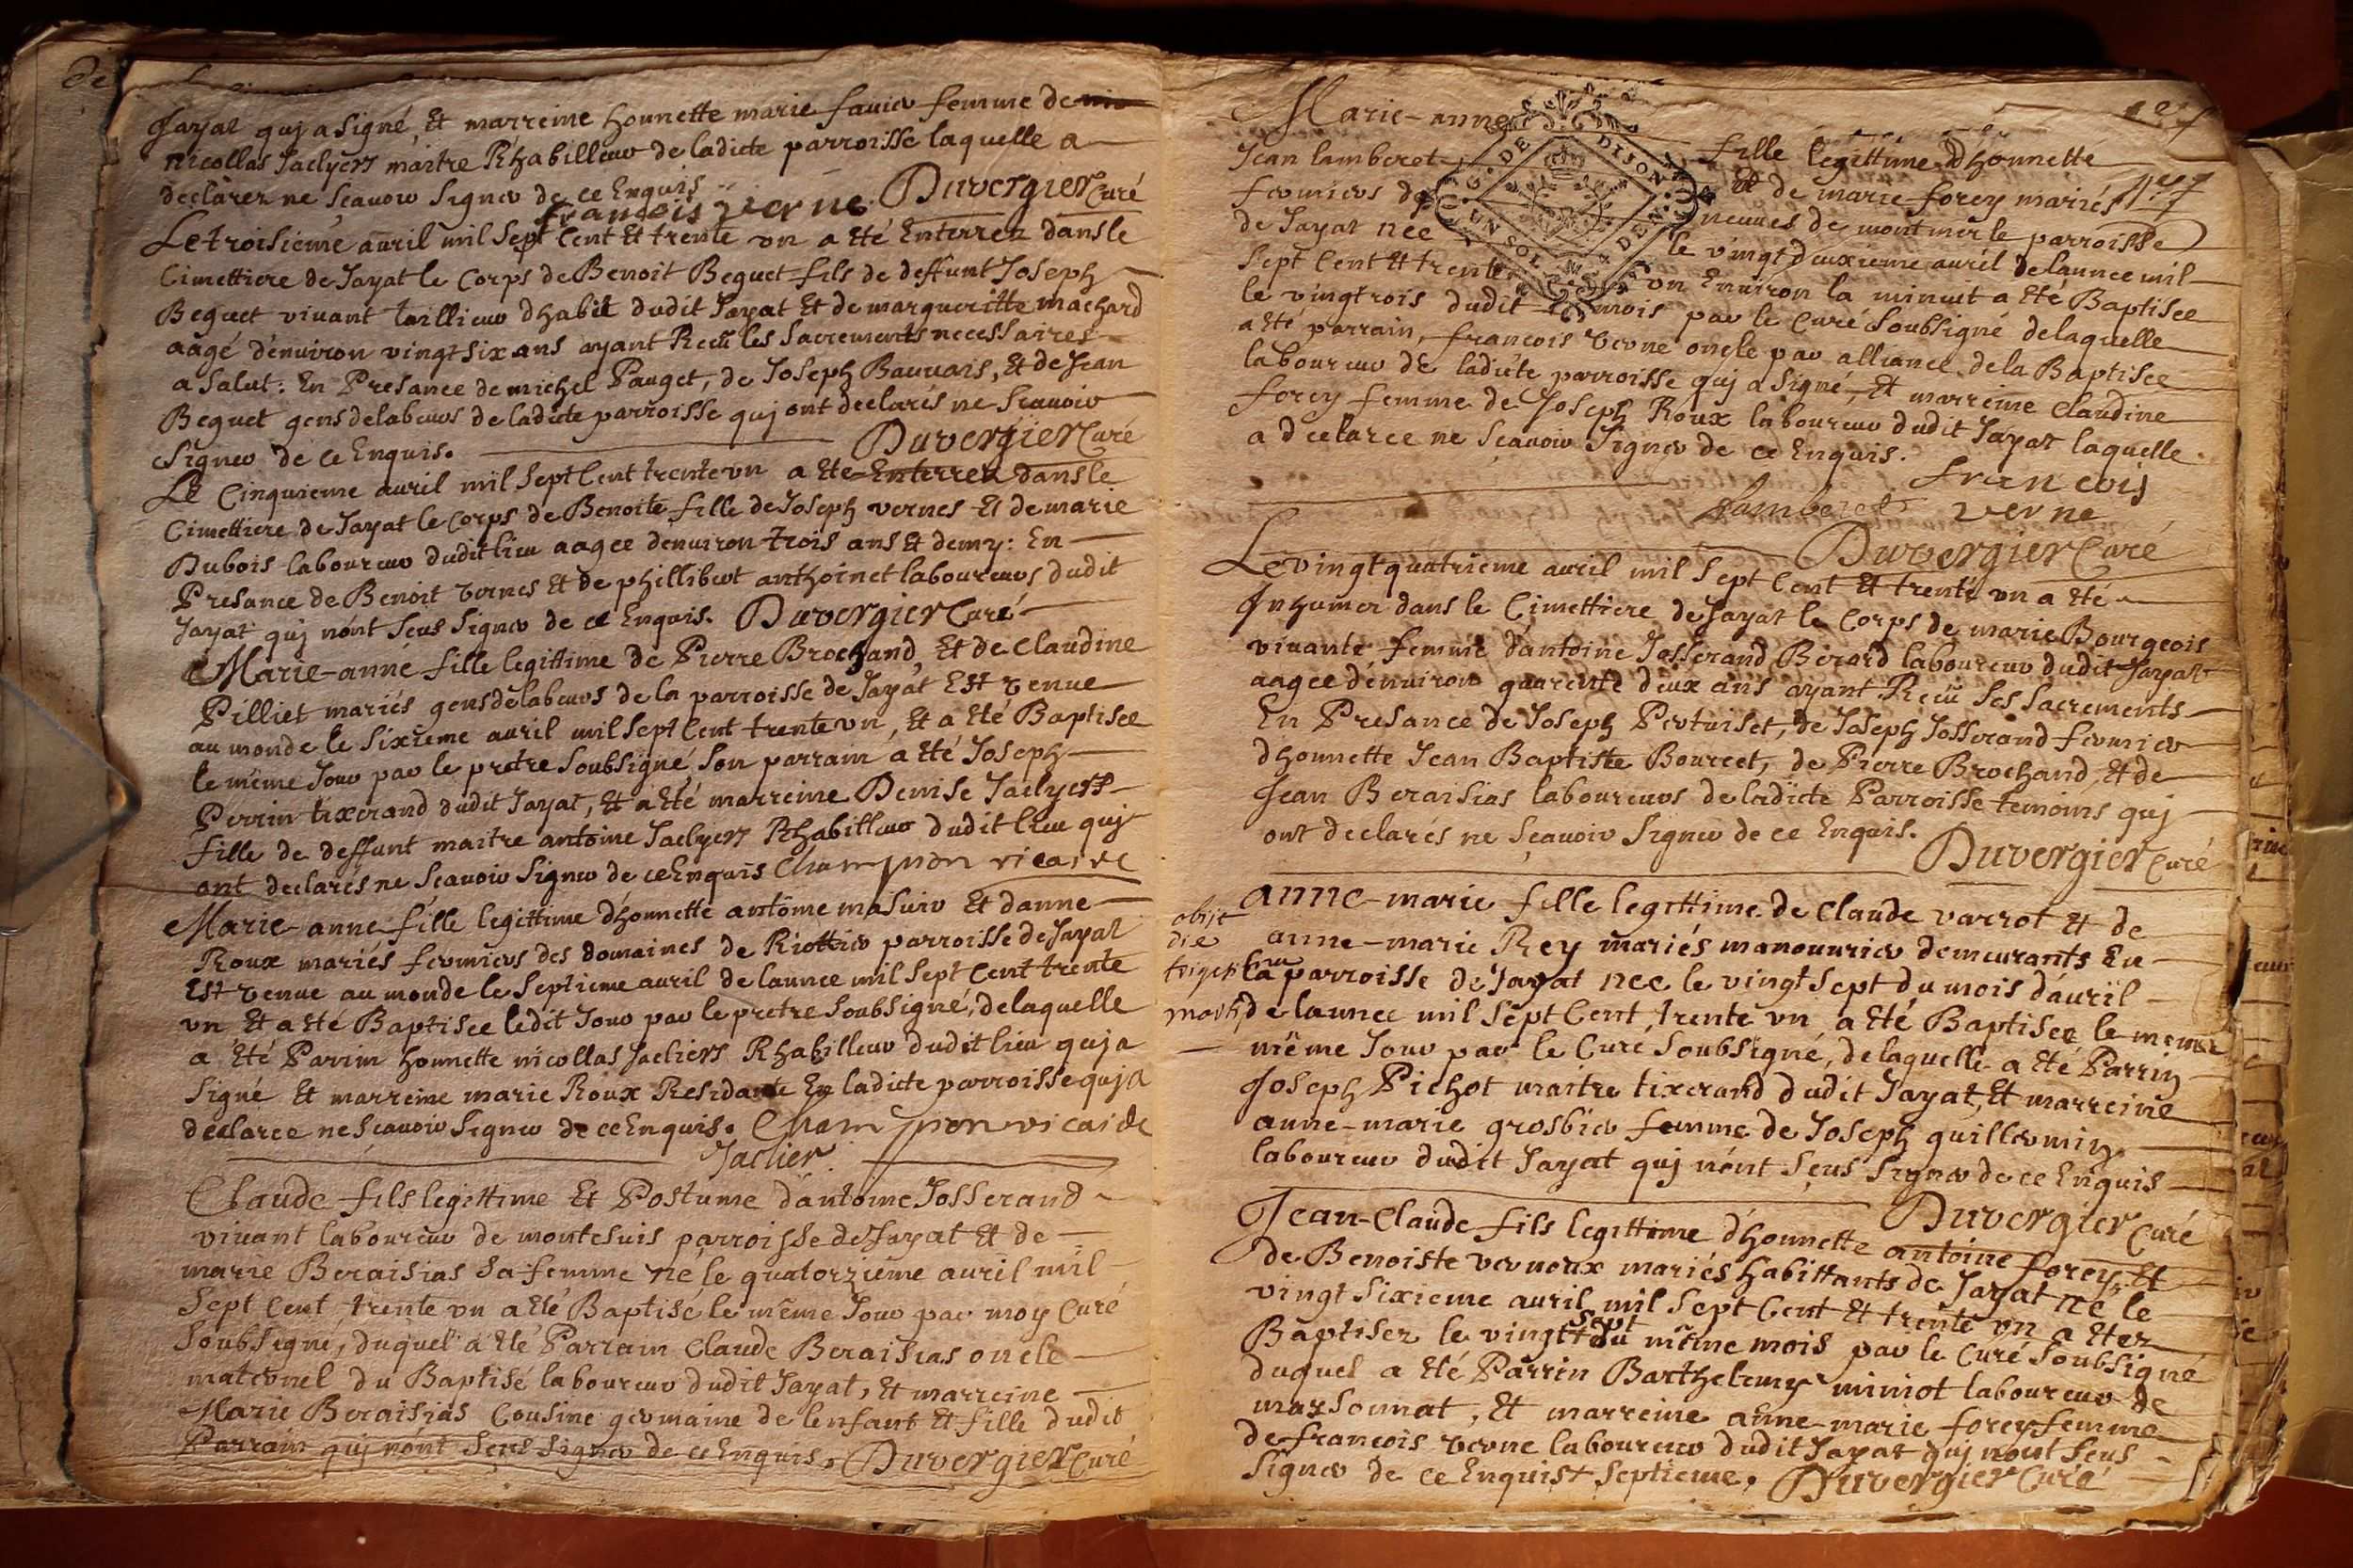 Jayat quj a signé, Et marreine honnette marie favier femme de
nicollas Jaclyers maitre Rhabilleur de ladicte parroisse laquelle a
declarez ne scauoir signer de ce Enquis
francois verne Duvergier Curé
Le troisieme auril mil sept Cent Et trente vn a Eté Enterrez dans le
Cimettiere de Jayat le Corps de Benoit Beguet fils de deffunt Joseph
Beguet viuant taillieur dhabit dudit Jayat Et de margueritte machard
aagé dénuiron vingt six ans ayant Reçû les sacrements necessaires
a salut: En Presance de michel Pauget, de Joseph Bauuais, Et de Jean
Beguet gens de labeurs de ladicte parroisse quj ont declarés ne scauoir
signer de ce Enquis. Duvergier Curé
Le Cinquieme auril mil sept Cent trente vn a Eté Enterrez dans le
Cimettiere de Jayat le Corps de Benoite fille de Joseph vernes Et de marie
Dubois laboureur dudit lieu aagee denuiron trois ans Et demy: En
Presance de Benoit vernes Et de phillibert anthoinet laboureurs dudit
Jayat quj nónt seus signer de ce Enquis. Duvergier Curé
Marie-anne fille legittime de Pierre Brochand, Et de Claudine
Pilliet mariés gens de labeurs de la parroisse de Jayat Est venue
au monde le sixieme auril mil sept Cent trente vn, Et a Eté Baptisee
le même Jour par le pretre soubsigné, son parrain a Eté Joseph
Perrin tixerand dudit Jayat, Et a Eté marreine Denise Jaclyers
fille de deffunt maitre antoine Jaclyers Rhabilleur dudit lieu quj
ont declarés ne sçauoir signer de ce Enquis Champion vicaire
Marie-anne fille legittime dhonnette antoine masuir Et danne
Roux mariés fermiers des domaines de Riottier parroisse de Jayat
Est venue au monde le septieme auril de lannee mil sept Cent trente
vn Et a Eté Baptisee ledit Jour par le pretre soubsigné, de laquelle
a Eté Parrin honnette nicollas Jacliers Rhabilleur dudit lieu quj a
signé Et marreine marie Roux Residante En ladicte parroisse quj a
declaree ne scauoir signer de ce Enquis. Champion vicaire
Jaclier
Claude fils legittime Et Postume dantoine Josserand
viuant laboureur de montesuis parroisse de Jayat Et de
marie Beraisias sa femme né le quatorzieme auril mil
sept Cent trente vn a Eté Baptisé le même Jour par moy Curé
soubsigné, duquel a Eté Parrain Claude Beraisias oncle
maternel du Baptisé laboureur dudit Jayat, Et marreine
Marie Beraisias Cousine germaine de lenfant Et fille dudit
Parrain quj nónt seus signer de ce Enquis. Duvergier Curé
Marie-anne fille legittime dhonnette
Jean lamberet Et de marie forey mariés
fermiers de neuues de montmerle parroisse
de Jayat nee le vingt deuxieme auril de lannee mil
sept Cent Et trente vn Enuiron la minuit a Eté Baptisee
le vingtrois dudit mois par le Curé soubsigné de laquelle
a Eté parrain, francois verne oncle par alliance de la Baptisee
laboureur de ladicte parroisse quj a signé, Et marreine Claudine
forey femme de Joseph Roux laboureur dudit Jayat laquelle
a declaree ne sçauoir signer de ce Enquis.
G. DE DIJON UN SOL
francois
lamberet verne
Duvergier Curé
Le vingt quatrieme auril mil sept Cent Et trente vn a Eté
Inhumer dans le Cimettiere de Jayat le Corps de marie Bourgeois
viuante femme dantoine Josserand Berard laboureur dudit Jayat
aagee dénuiron quarente deux ans ayant Reçû ses sacrements
En Presance de Joseph Pertuiset, de Joseph Josserand fermier
dhonnette Jean Baptiste Bourcet, de Pierre Brochand, Et de
Jean Beraisias laboureurs de ladicte Parroisse temoins quj
ont declarés ne sçauoir signer de ce Enquis.
Duvergier Curé
anne-marie fille legittime de Claude varrot Et de
anne-marie Rey mariés manouurier demeurants En
la parroisse de Jayat nee le vingt sept du mois dáuril
de lannee mil sept Cent trente vn a Eté Baptisee le meme
même Jour par le Curé soubsigné, de laquelle a Eté Parrin
Joseph Pichot maitre tixerand dudit Jayat, Et marreine
anne-marie grosbier femme de Joseph guillermin
laboureur dudit Jayat quj nónt sçus signer de ce Enquis
obijt
die
Duvergier Curé
Jean-Claude fils legittime dhonnette antoine forey, Et
de Benoiste vernoux mariés habittants de Jayat né le
vingt sixieme auril mil sept Cent Et trente vn a Etez
Baptisez le vingt sept du même mois par le Curé soubsigné
duquel a Eté Parrin Barthelemy miniot laboureur de
marsonnat, Et marreine anne-marie forey femme
de francois verne laboureur dudit Jayat quj nont seus
signer de ce Enquist septieme. Duvergier Curé